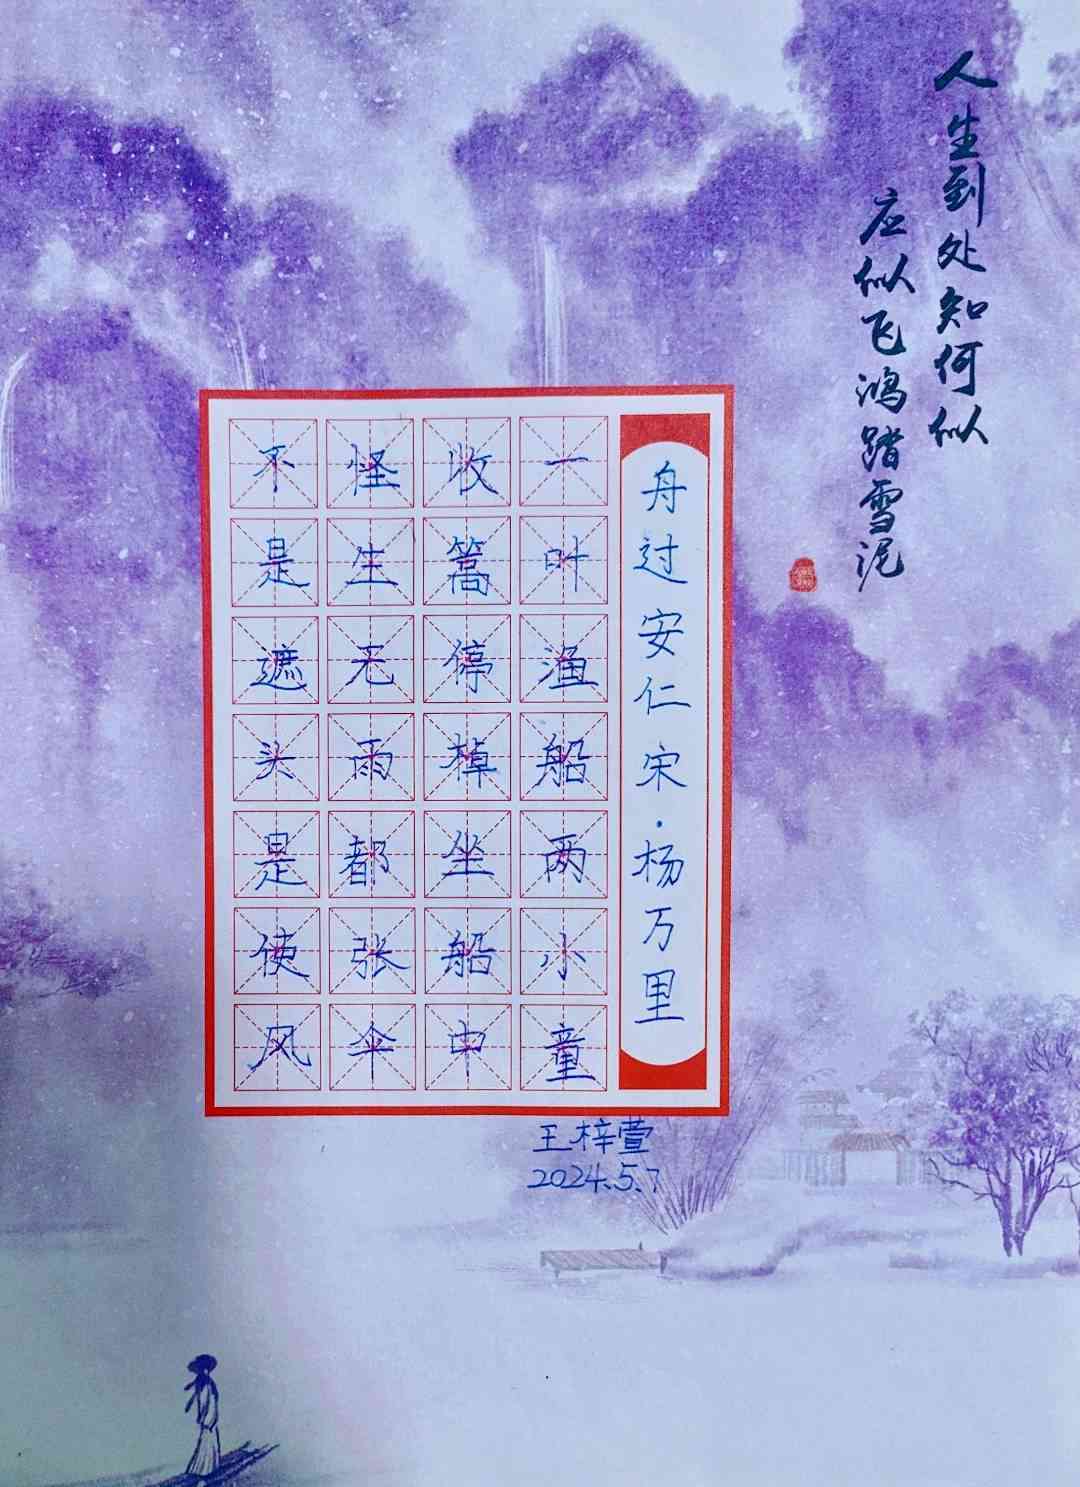 人生到处知何似
应似飞鸿踏雪泥
舟过安仁 宋·杨万里
一叶渔船两小童
收篙停棹坐船中
怪生无雨都张伞
不是遮头是使风
王梓萱
2024.5.7